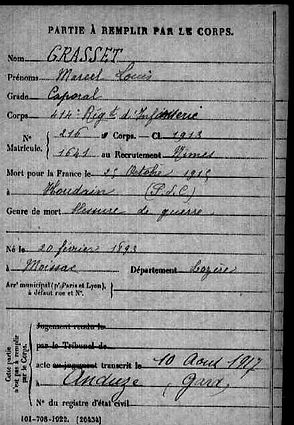 PARTIE À REMPLIR PAR LE CORPS.
Nom GRASSET
Prénoms Marcel Louis
Grade Caporal
Corps 414e Régt d'Infanterie
N° Matricule. 216 au Corps. — Cl. 1913
1641 au Recrutement Nîmes
Mort pour la France le 25 Octobre 1915
à Houdain (P. d. C.)
Genre de mort Blessure de guerre
Né le 20 février 1893
à Moissac Département Lozère
Arrt municipal (pr Paris et Lyon),
à défaut rue et N°.
Cette partie n'est pas à remplir par le Corps.
Jugement rendu le
par le Tribunal de
acte ou jugement transcrit le 10 Août 1917
à Anduze (Gard)
N° du registre d'état civil
101-708-1922. [26434]